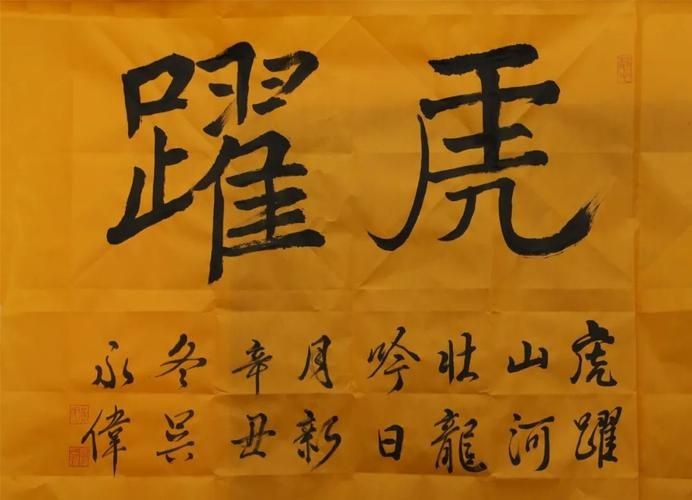 虎躍
虎躍
山河
壯龍
吟日
月新
辛丑
冬吳
永偉